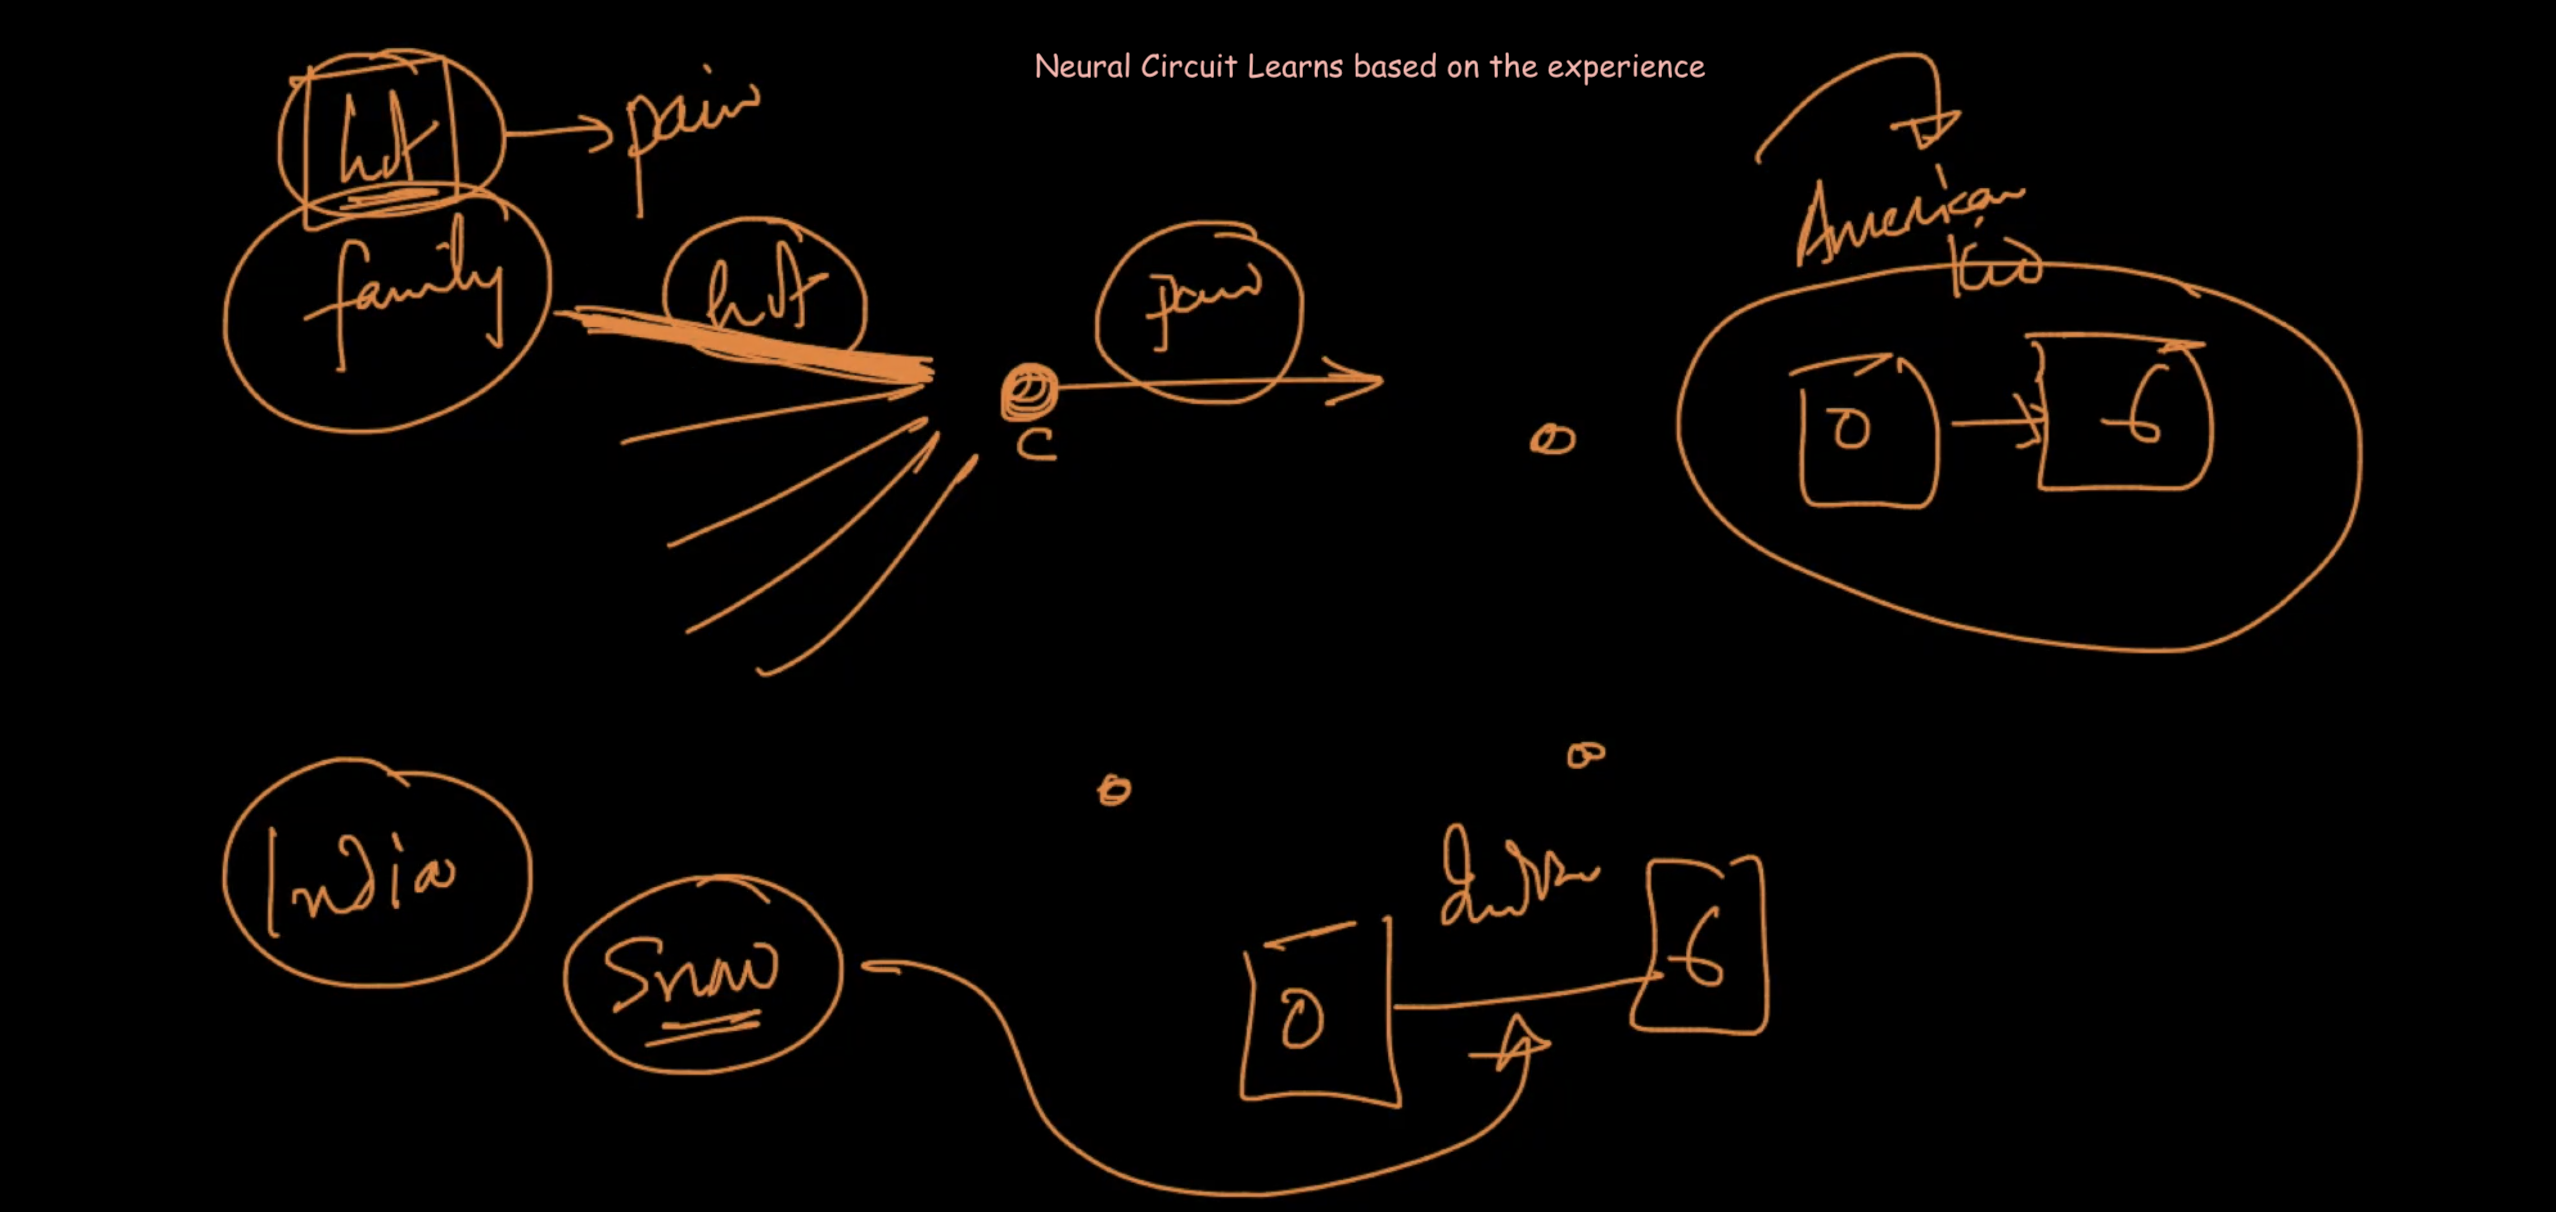 Neural Circuit Learns based on the experience
hot
pain
family
hot
pain
C
American
kid
0
6
India
Snow
0
6